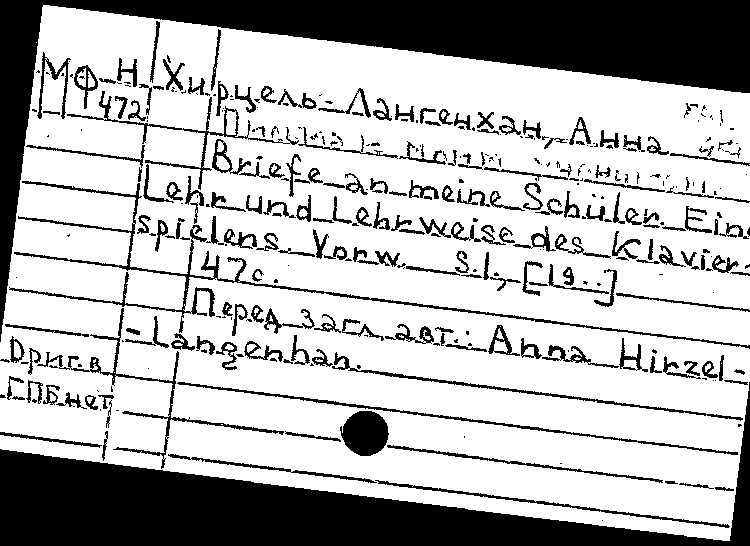 МФ Н 472
Хирцель-Лангенхан, Анна
Письма к моим ученикам.
Briefe an meine Schüler. Eine
Lehr und Lehrweise des Klavier-
spielens. Vorw. S.l., [19..]
47с.
Перед загл. авт.: Anna Hirzel-
-Langenhan.
Ориг. в
ГПБ нет